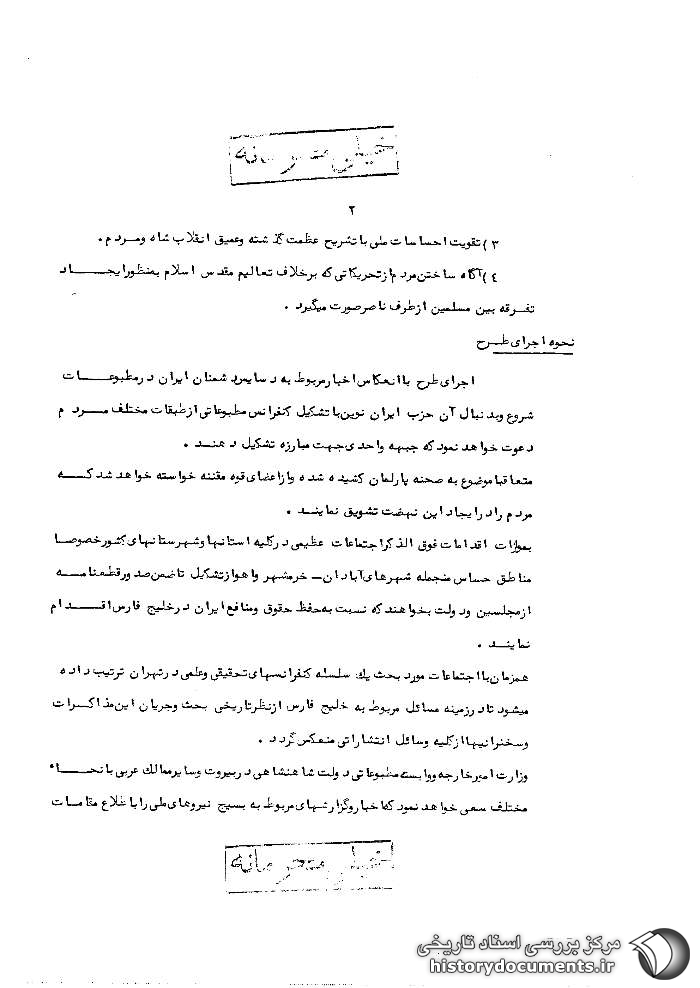 خیلی محرمانه
۲
۳) تقویت احساسات ملی با تشریح عظمت گذشته و عمیق انقلاب شاه و مردم .
٤) آگاه ساختن مردم از تحریکاتی که برخلاف تعالیم مقدس اسلام بمنظور ایجاد
تفرقه بین مسلمین از طرف ناصر صورت میگیرد .
نحوه اجرای طرح
اجرای طرح با انعکاس اخبار مربوط به دسایس دشمنان ایران در مطبوعات
شروع و بدنبال آن حزب ایران نوین با تشکیل کنفرانس مطبوعاتی از طبقات مختلف مردم
دعوت خواهد نمود که جبهه واحدی جهت مبارزه تشکیل دهند .
متعاقبا موضوع به صحنه پارلمان کشیده شده و از اعضای قوه مقننه خواسته خواهد شد که
مردم را در ایجاد این نهضت تشویق نمایند .
بموازات اقدامات فوق الذکر اجتماعات عظیمی در کلیه استانها و شهرستانهای کشور خصوصا
مناطق حساس منجمله شهرهای آبادان - خرمشهر و اهواز تشکیل تا ضمن صدور قطعنامه
از مجلسین و دولت بخواهند که نسبت به حفظ حقوق و منافع ایران در خلیج فارس اقدام
نمایند .
همزمان با اجتماعات مورد بحث یك سلسله کنفرانسهای تحقیقی و علمی در تهران ترتیب داده
میشود تا در زمینه مسائل مربوط به خلیج فارس از نظر تاریخی بحث و جریان این مذاکرات
و سخنرانیها از کلیه وسائل انتشاراتی منعکس گردد .
وزارت امور خارجه و وابسته مطبوعاتی دولت شاهنشاهی در بیروت و سایر ممالك عربی با نحاء
مختلف سعی خواهد نمود که اخبار و گزارشهای مربوط به بسیج نیروهای ملی را باطلاع مقامات
خیلی محرمانه
مرکز بررسی اسناد تاریخی
historydocuments.ir